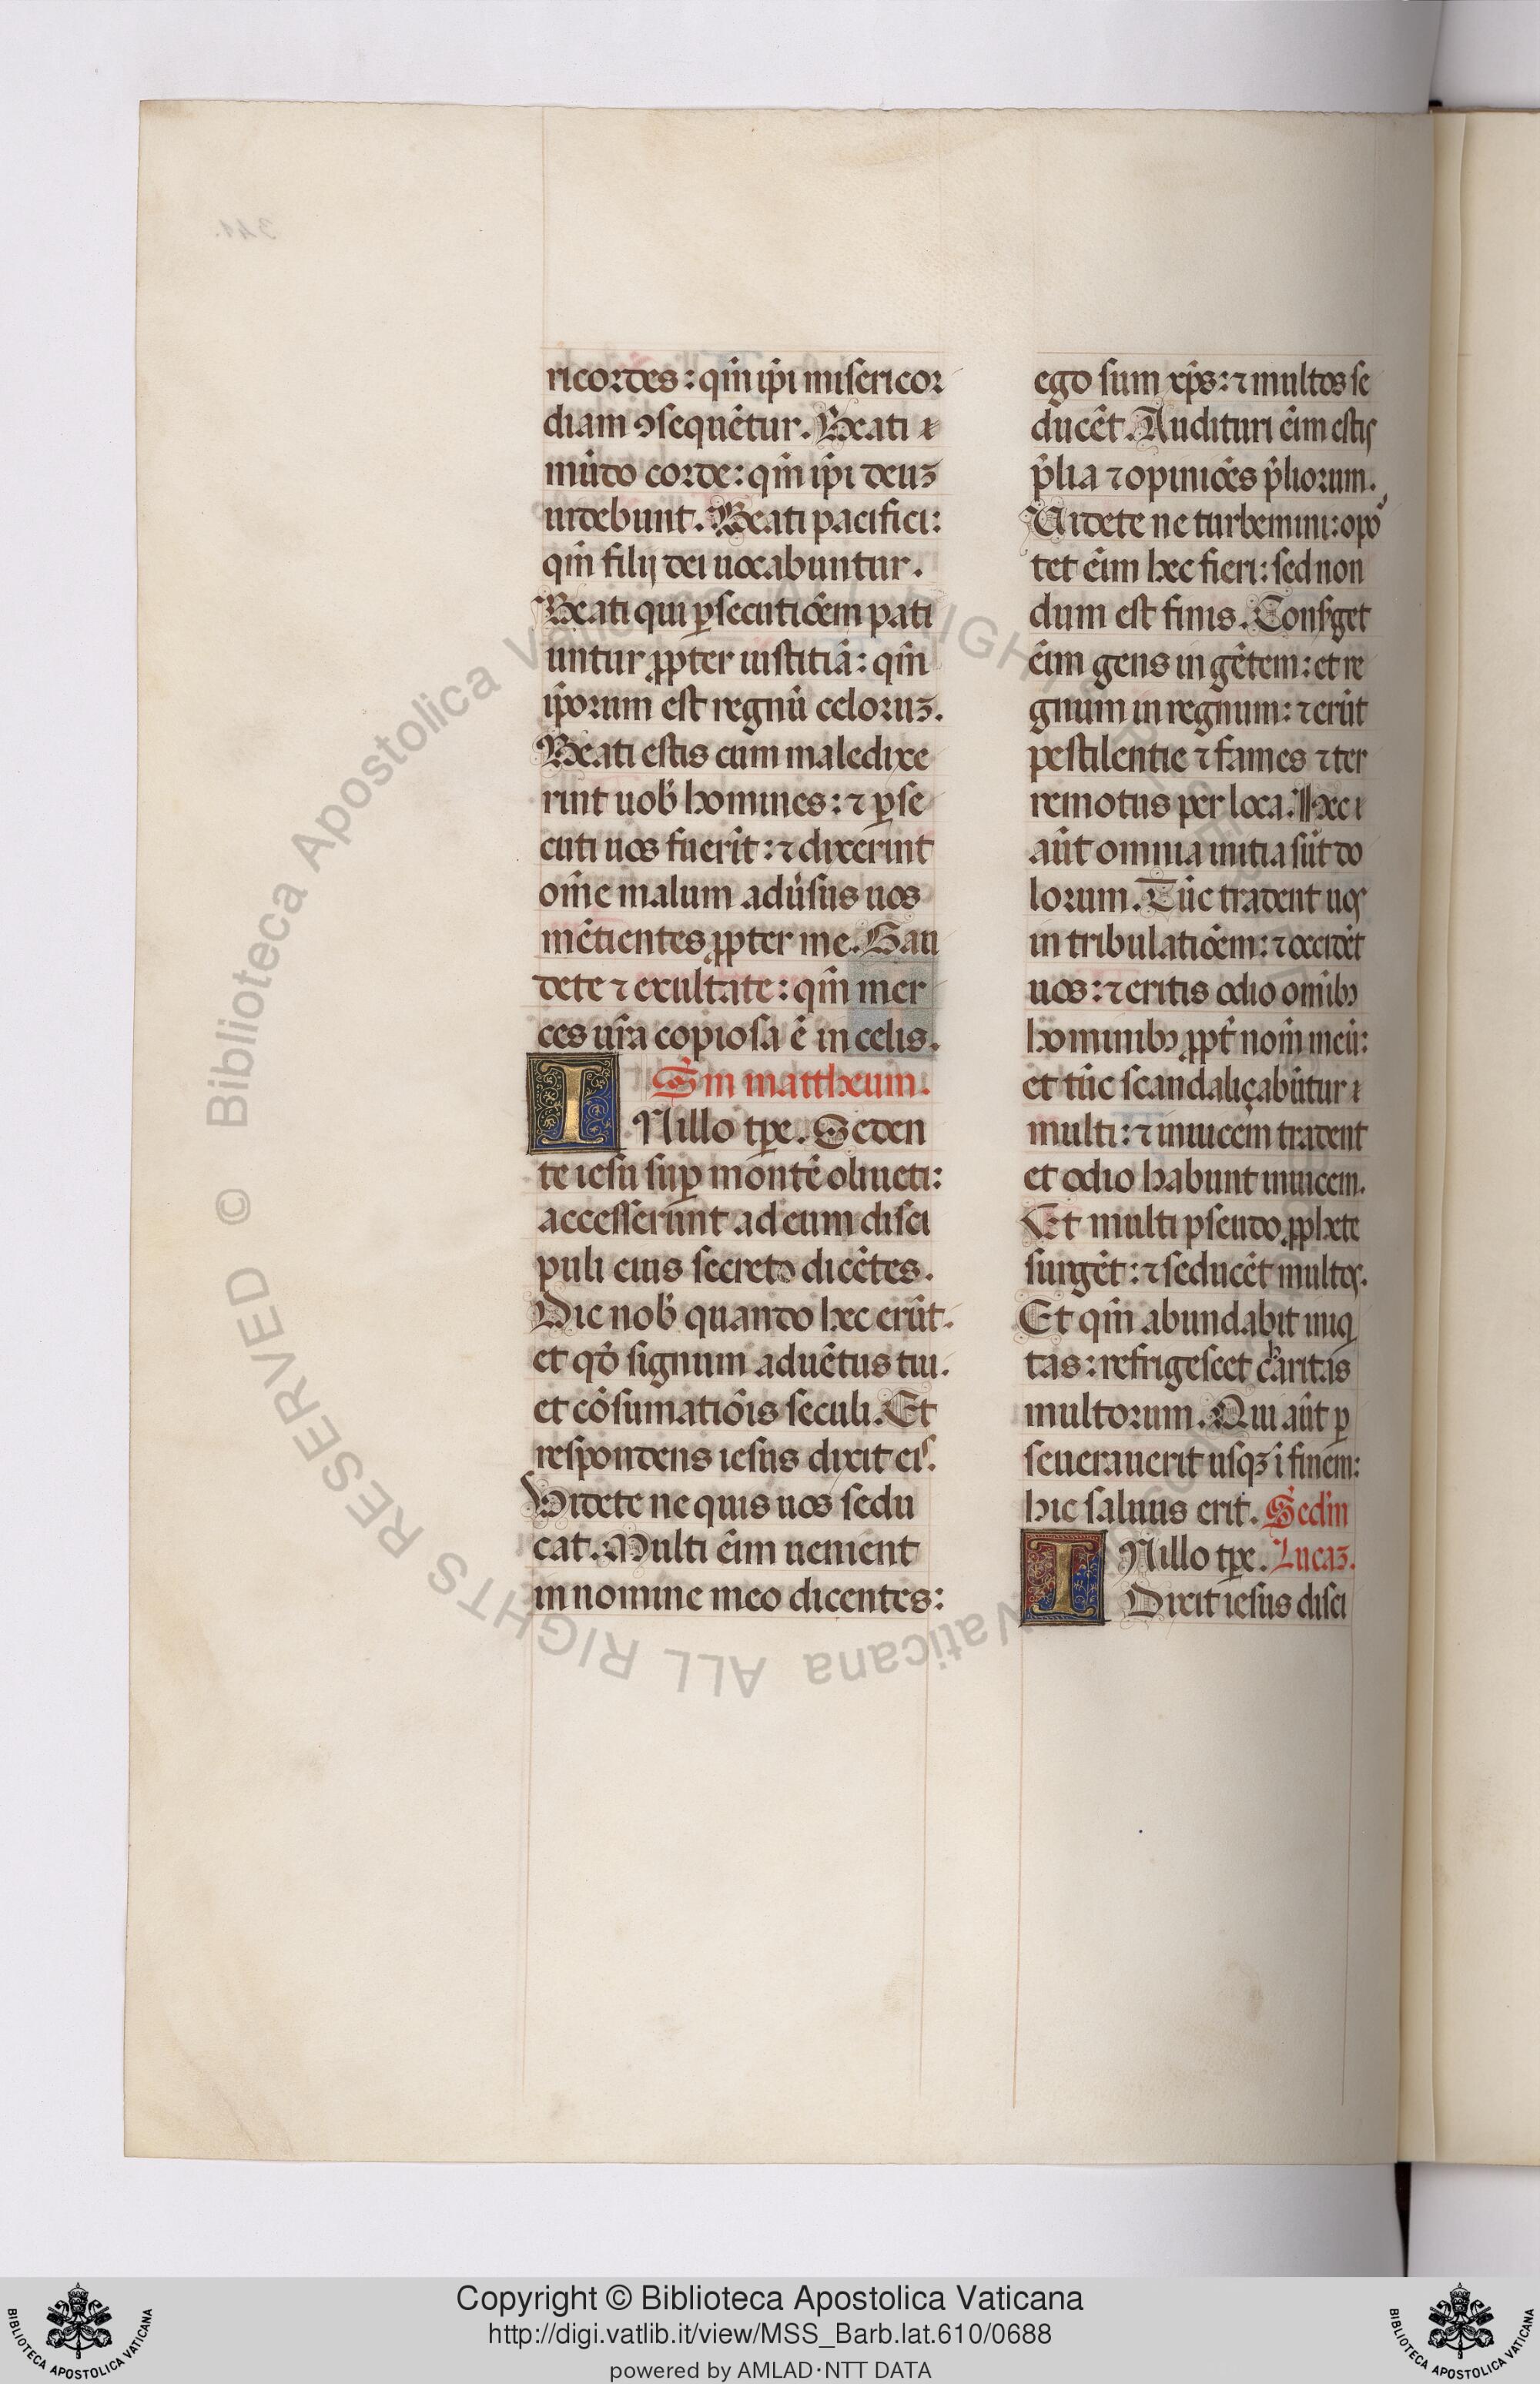 ricordes: qm̄ ip̄i misericor
diam ꝯsequētur. Beati
mūdo corde: qm̄ ip̄i deuꝫ
uidebunt. Beati pacifici:
qm̄ filij dei uocabuntur.
Beati qui ꝑsecutiōem pati
untur ꝓpter iustitiā: qm̄
ip̄orum est regnū celoruꝫ.
Beati estis cum maledixe
rint uob̄ homines: ⁊ ꝑse
cuti uos fuerīt: ⁊ dixerint
om̄e malum adūsus uos
mētientes ꝓpter me. Gau
dete ⁊ exultate: qm̄ mer
ces ur̄a copiosa ē in celis.
Sm̄ mattheum.
IN illo tꝑe. Seden
te iesu suꝑ montē oliueti:
accesserunt ad eum disci
puli eius secreto dicētes.
Dic nob̄ quando hec erūt.
et qd̄ signum aduētus tui.
et cōsumatiōis seculi. Et
respondens iesus dixit eis.
Videte ne quis uos sedu
cat. Multi eīm uenient
in nomine meo dicentes:
ego sum xp̄s: ⁊ multos se
ducēt. Audituri eīm estis
p̄lia ⁊ opiniōes p̄liorum.
Videte ne turbemini: opoꝛ
tet eīm hec fieri: sed non
dum est finis. Consꝰget
eīm gens in gētem: et re
gnum in regnum: ⁊ erūt
pestilentie ⁊ fames ⁊ ter
remotus per loca. Hec
aūt omnia initia sūt do
lorum. Tūc tradent uos
in tribulatiōem: ⁊ occidēt
uos: ⁊ eritis odio om̄ibꝰ
hominibꝰ ꝓpt̄ nom̄ meū:
et tūc scandaliçabūtur
multi: ⁊ inuicem tradent
et odio habunt inuicem.
Et multi pseudo ꝓphete
surgēt: ⁊ seducēt multos.
Et qm̄ abundabit iniq
tas: refrigescet caritas
multorum. Qui aūt ꝑ
seuerauerit usqꝫ ī finem:
hic saluus erit. Sedm̄
IN illo tꝑe. Lucaꝫ.
Dixit iesus disci
© Biblioteca Apostolica Vaticana ALL RIGHTS RESERVED
Copyright © Biblioteca Apostolica Vaticana
http://digi.vatlib.it/view/MSS_Barb.lat.610/0688
powered by AMLAD·NTT DATA
BIBLIOTECA APOSTOLICA VATICANA
BIBLIOTECA APOSTOLICA VATICANA